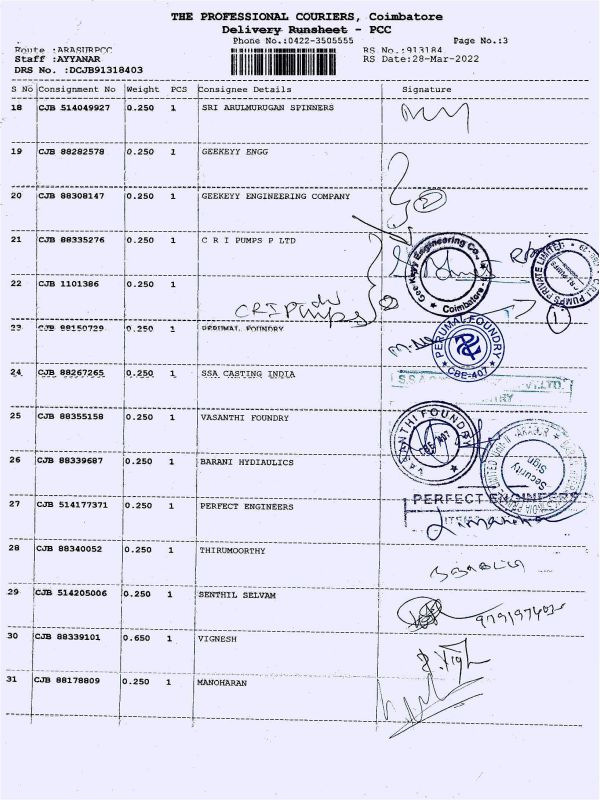 THE PROFESSIONAL COURIERS, Coimbatore
Delivery Runsheet - PCC
Phone No.:0422-3505555 Page No.:3
Route :ARASURPCC RS No.:913184
Staff :AYYANAR RS Date:28-Mar-2022
DRS No. :DCJB91318403
S No Consignment No Weight PCS Consignee Details Signature
18 CJB 514049927 0.250 1 SRI ARULMURUGAN SPINNERS
19 CJB 88282578 0.250 1 GEEKEYY ENGG
20 CJB 88308147 0.250 1 GEEKEYY ENGINEERING COMPANY
2
21 CJB 88335276 0.250 1 C R I PUMPS P LTD
Gee Keyy Engineering Co., Coimbatore
PUMPS PRIVATE LIMITED
22 CJB 1101386 0.250 1
CRI Pumps 2
1
23 CJB 88150729 0.250 1 PERUMAL FOUNDRY
PERUMAL FOUNDRY CBE-407
24 CJB 88267265 0.250 1 SSA CASTING INDIA
25 CJB 88355158 0.250 1 VASANTHI FOUNDRY
VASANTHI FOUNDRY CBE-407
26 CJB 88339687 0.250 1 BARANI HYDIAULICS
Security Sign
27 CJB 514177371 0.250 1 PERFECT ENGINEERS
PERFECT ENGINEERS
28 CJB 88340052 0.250 1 THIRUMOORTHY
29 CJB 514205006 0.250 1 SENTHIL SELVAM
30 CJB 88339101 0.650 1 VIGNESH
31 CJB 88178809 0.250 1 MANOHARAN